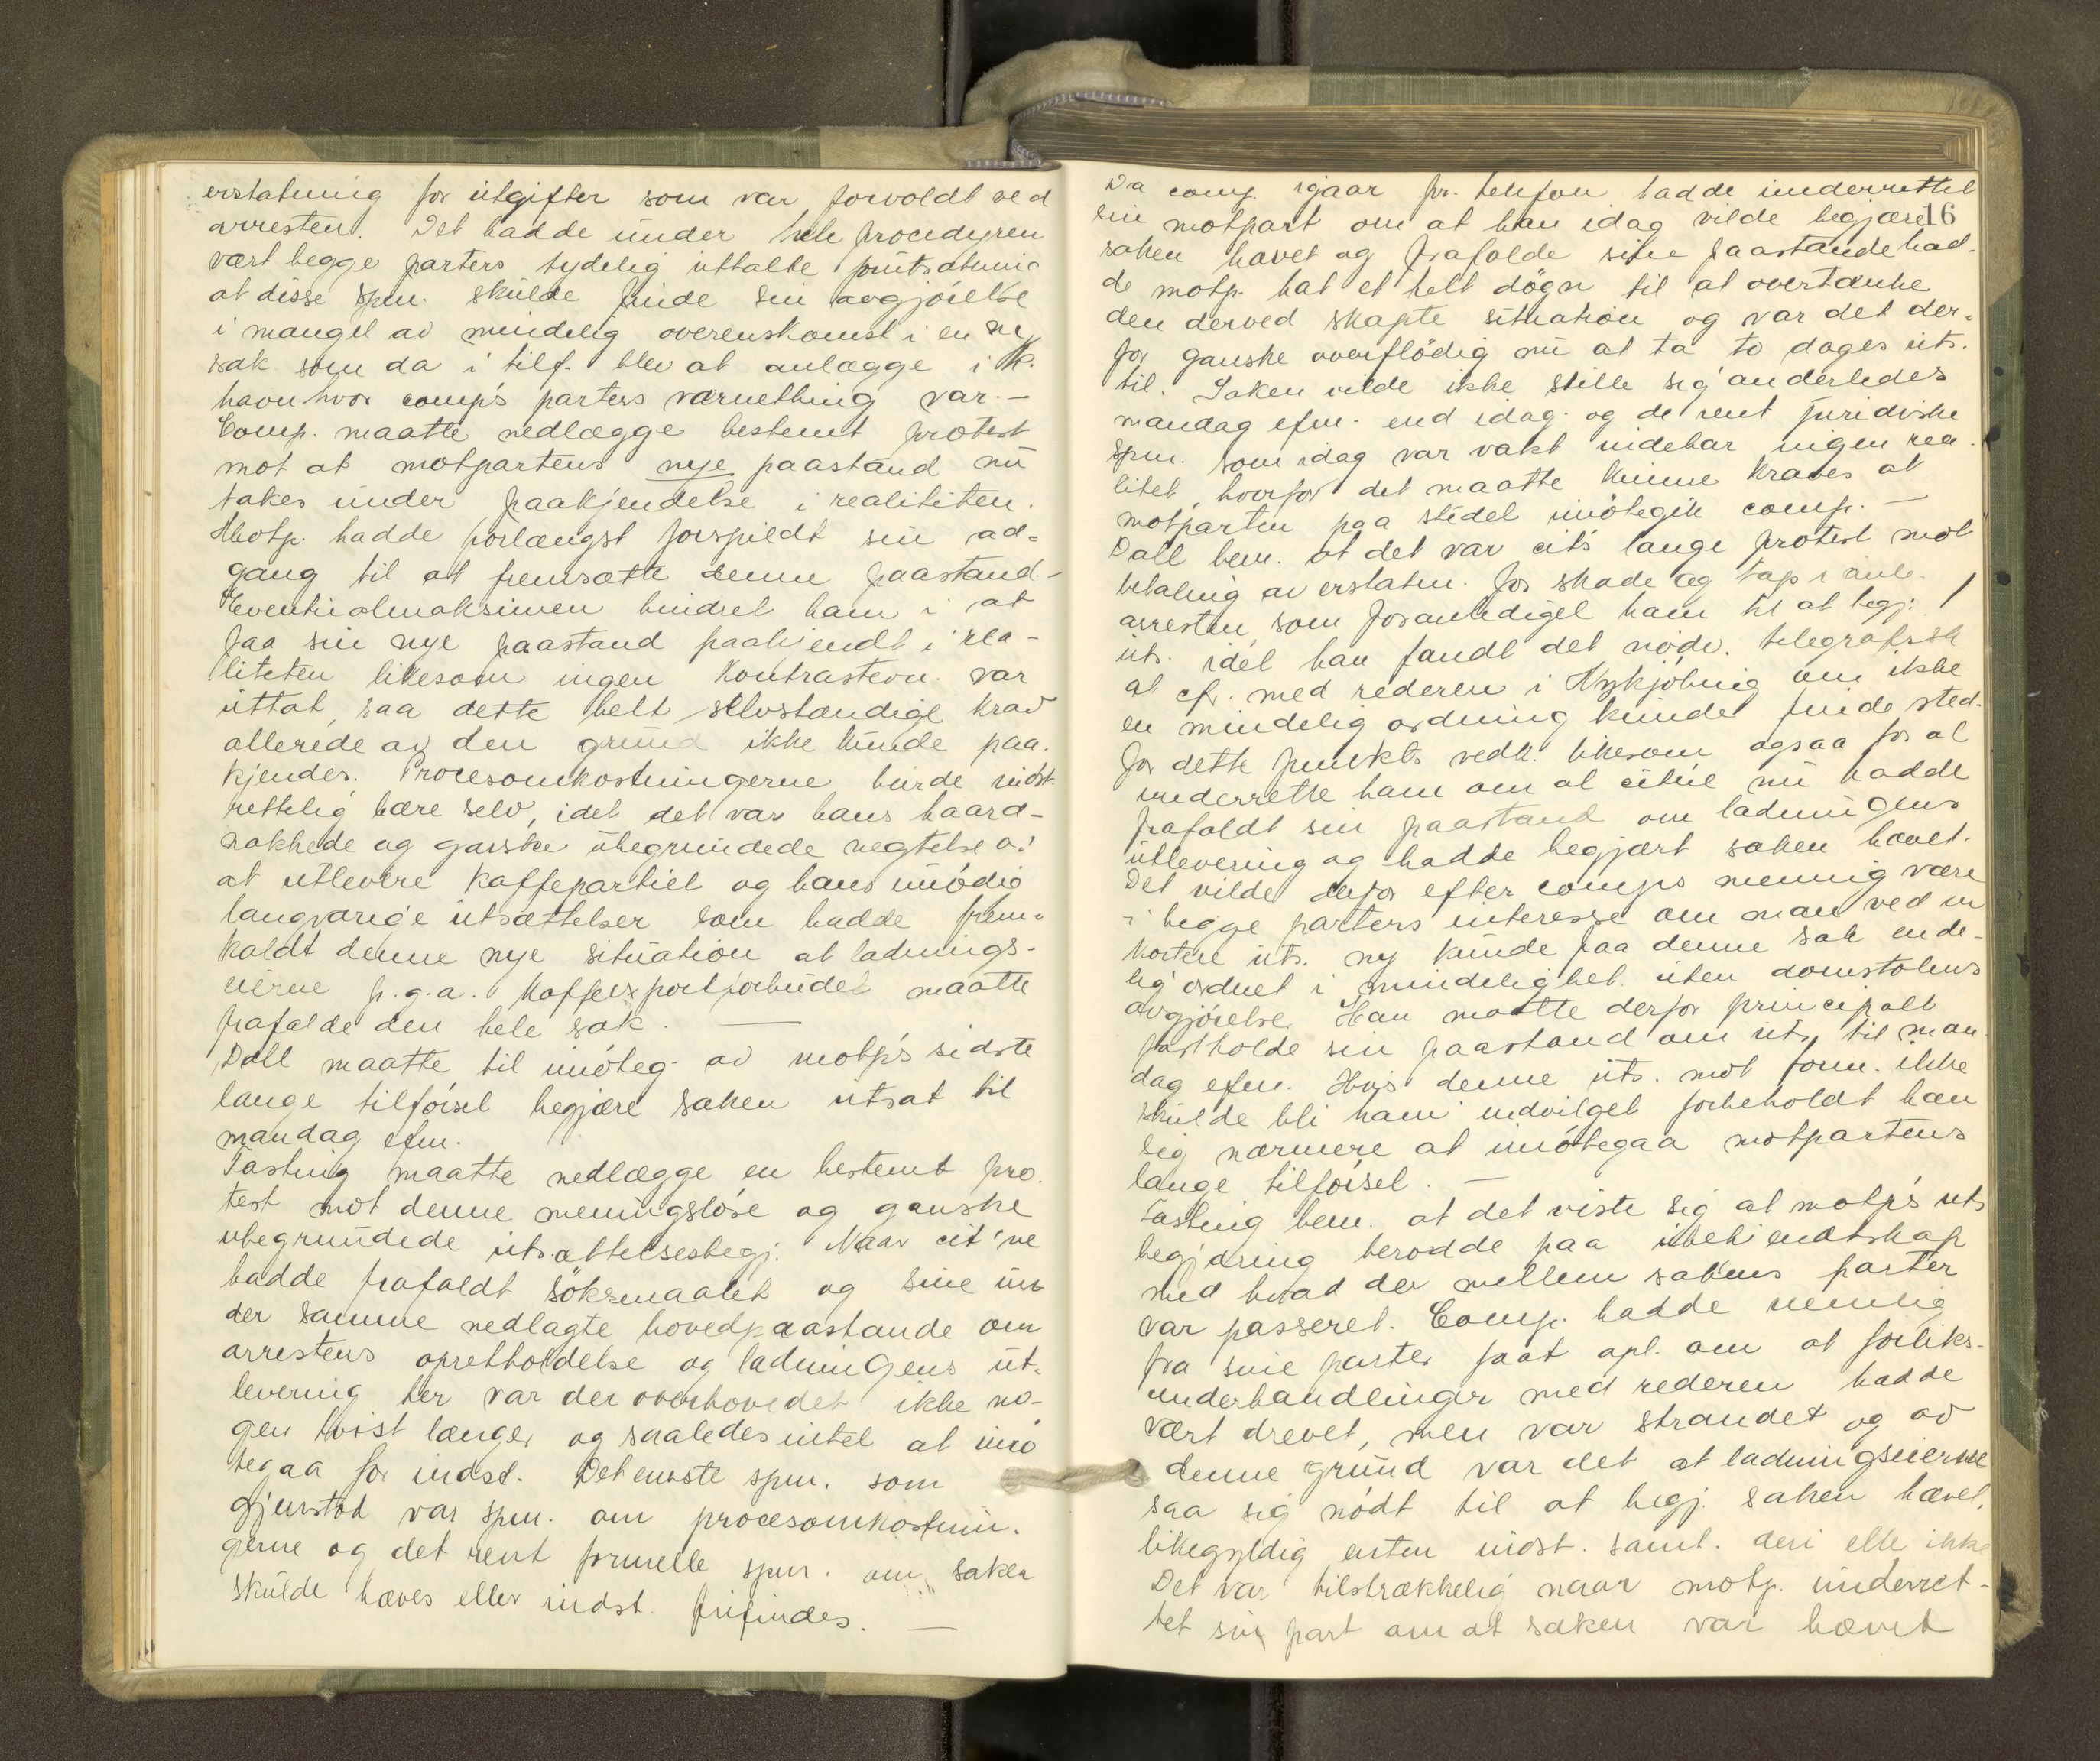 erstatning for utgifter som var forvoldt ved
arresten. Det hadde under hele procedyren
vært begge parters tydelig uttalte forutsætning
at disse spm. skulde finde sin avgjørelse
i mangel av mindelig overenskomst i en ny
sak som da i tilf. blev at anlægge i K.
havn hvor comp's parters værnething var. —
Comp. maatte nedlægge bestemt protest
mot at motpartens nye paastand nu
takes under paakjendelse i realiteten.
Motp. hadde forlængst forspildt sin ad-
gang til at fremsætte denne paastand. —
Eventualmaksimen hindret ham i at
faa sin nye paastand paakjendt i rea-
liteten likesom ingen Kontrastevn. var
uttat, saa dette helt selvstændige krav
allerede av den grund ikke kunde paa-
kjendes. Procesomkostningerne burde indst.
rettelig bære selv, idet det var hans haard-
nakkede og ganske ubegrundede negtelse av
at utlevere kaffepartiet og hans unødig
langvarige utsættelser som hadde frem-
kaldt denne nye situation at ladnings-
eierne p.g.a. Kaffeexportforbudet maatte
frafalde den hele sak. —
Dall maatte til imøteg. av motp's sidste
lange tilførsel begjære saken utsat til
mandag efm.
Tasting maatte nedlægge en bestemt pro-
test mot denne meningsløse og ganske
ubegrundede utsættelsesbegj. Naar cit'ne
hadde frafaldt søksmaalet og sine un-
der samme nedlagte hovedpaastande om
arrestens opretholdelse og ladningens ut-
levering her var der overhovedet ikke no-
gen tvist længer og saaledes intet at imø
tegaa for indst. Det eneste spm. som
gjenstod var spm. om procesomkostnin-
gerne og det rent formelle spm. om saken
skulde hæves eller indst. frifindes. —
16
Da comp. igaar pr. telefon hadde underrettet
sin motpart om at han idag vilde begjære
saken hævet og frafalde sine paastande had-
de motp. hat et helt døgn til at overtænke
den derved skapte situation og var det der-
for ganske overflødig nu at ta to dages uts.
til. Saken vilde ikke stille sig anderledes
mandag efm. end idag og de rent juridiske
spm. som idag var vakt indebar ingen rea-
litet, hvorfor det maatte kunne kræves at
motparten paa stedet imøtegik comp. —
Dall bem. at det var cit's lange protest mot
betaling av erstatn. for skade og tap i anl.
arresten som foranlediget ham til at begj.
uts. idet han fandt det nødv. telegrafisk
at cf. med rederen i Nykjøbing om ikke
en mindelig ordning kunde finde sted
for dette punkts vedk. likesom ogsaa for at
underrette ham om at citne nu hadde
frafaldt sin paastand om ladningens
utlevering og hadde begjært saken hævet.
Det vilde derfor efter comps mening være
i begge parters interesse om man ved en
kortere uts. ny kunde faa denne sak ende-
lig ordnet i mindelighet uten domstolens
avgjørelse. Han maatte derfor principalt
fastholde sin paastand om uts. til man-
dag efm. Hvis denne uts. mot form. ikke
skulde bli ham indvilget forbeholdt han
sig nærmere at imøtegaa motpartens
lange tilførsel. —
Tasting bem. at det viste sig at motp's uts
begjæring berodde paa ubekjendtskap
med hvad der mellem sakens parter
var passeret. Comp. hadde nemlig
fra sine parter faat opl. om at forliks-
underhandlinger med rederen hadde
vært drevet, men var strandet og av
denne grund var det at ladningseierne
saa sig nødt til at begj. saken hævet,
likegyldig enten indst. samt. deri elle ikke
Det var tilstrækkelig naar motp. underret-
tet sin part om at saken var hævet